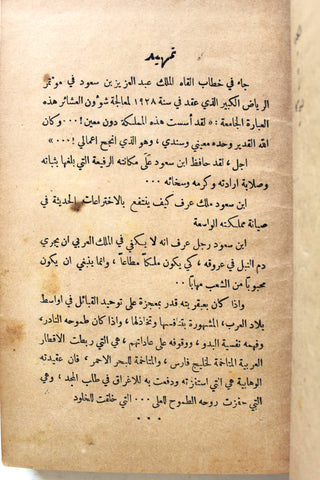 تمهيد
جاء في خطاب القاه الملك عبد العزيز بن سعود في موتمر
الرياض الكبير الذي عقد في سنة ١٩٢٨ لمعالجة شوُون العشائر هذه
العبارة الجامعة : « لقد أسست هذه المملكة دون معين ! . . . وكان
الله القدير وحده معيني وسندي ، وهو الذي انجح اعمالي ! . . . »
اجل ، لقد حافظ ابن سعود على مكانته الرفيعة التي بلغها بثباته
وصلابة ارادته وكرمه وسخائه . .
ابن سعود ملك عرف كيف ينتفع بالاختراعات الحديثة في
صيانة مملكته الواسعة
ابن سعود رجل عرف انه لا يكفي في الملك العربي ان يجري
دم النبل في عروقه ، كي يكون ملكاً مطاعاً ، وانما ينبغي ان يكون
محبوباً من الشعب مهاباً . .
واذا كان بعبقريته قدر بمعجزة على توحيد القبائل في اواسط
بلاد العرب ، المشهورة بتنافسها وتخاذلها ، واذا كان طموحه النادر
وفهمه نفسية البدو ، ووقوفه على عاداتهم ، هي التي ربطت الاقطار
العربية المتاخمة لخليج فارس ، والمتاخمة للبحر الاحمر ، فان عقيدته
الوهابية هي التي استفزته ودفعت به للاغراق في طلب المجد ، وهي
التي حفزت روحه الطموح للعلى . . . التي خلقت للخلود
. . .